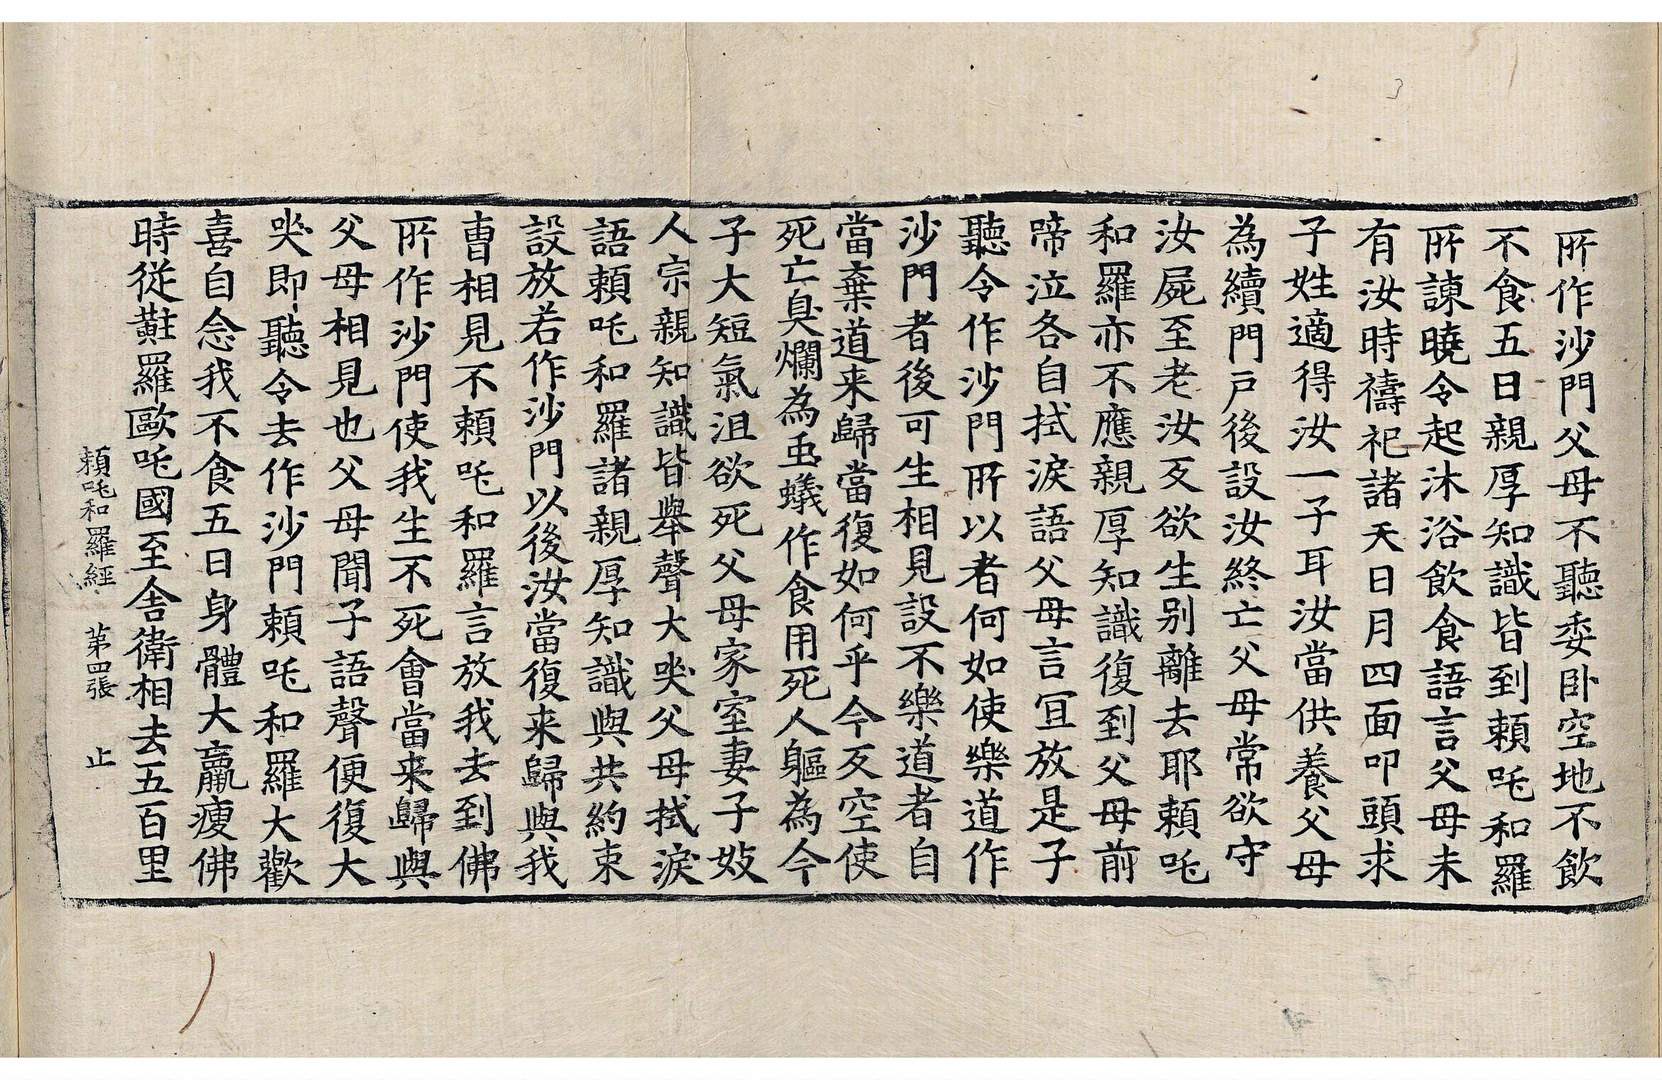 所作沙門父母不聽委卧空地不飲
不食五日親厚知識皆到頼吒和羅
所諫曉令起沐浴飲食語言父母未
有汝時禱祀諸天日月四面叩頭求
子姓適得汝一子耳汝當供養父母
為續門戶後設汝終亡父母常欲守
汝屍至老汝歹欲生别離去耶頼吒
和羅亦不應親厚知識復到父母前
啼泣各自拭淚語父母言冝放是子
聽令作沙門所以者何如使樂道作
沙門者後可生相見設不樂道者自
當棄道来歸當復如何乎今歹空使
死亡臭爛為䖝蟻作食用死人軀為今
子大短氣沮欲死父母家室妻子妓
人宗親知識皆舉聲大哭父母拭淚
語頼吒和羅諸親厚知識與共約束
設放若作沙門以後汝當復来歸與我
曺相見不頼吒和羅言放我去到佛
所作沙門使我生不死會當来歸與
父母相見也父母聞子語聲便復大
哭即聽令去作沙門頼吒和羅大歡
喜自念我不食五日身體大羸瘦佛
時從黈羅歐吒國至舎衛相去五百里
頼吒和羅經 苐四張 止